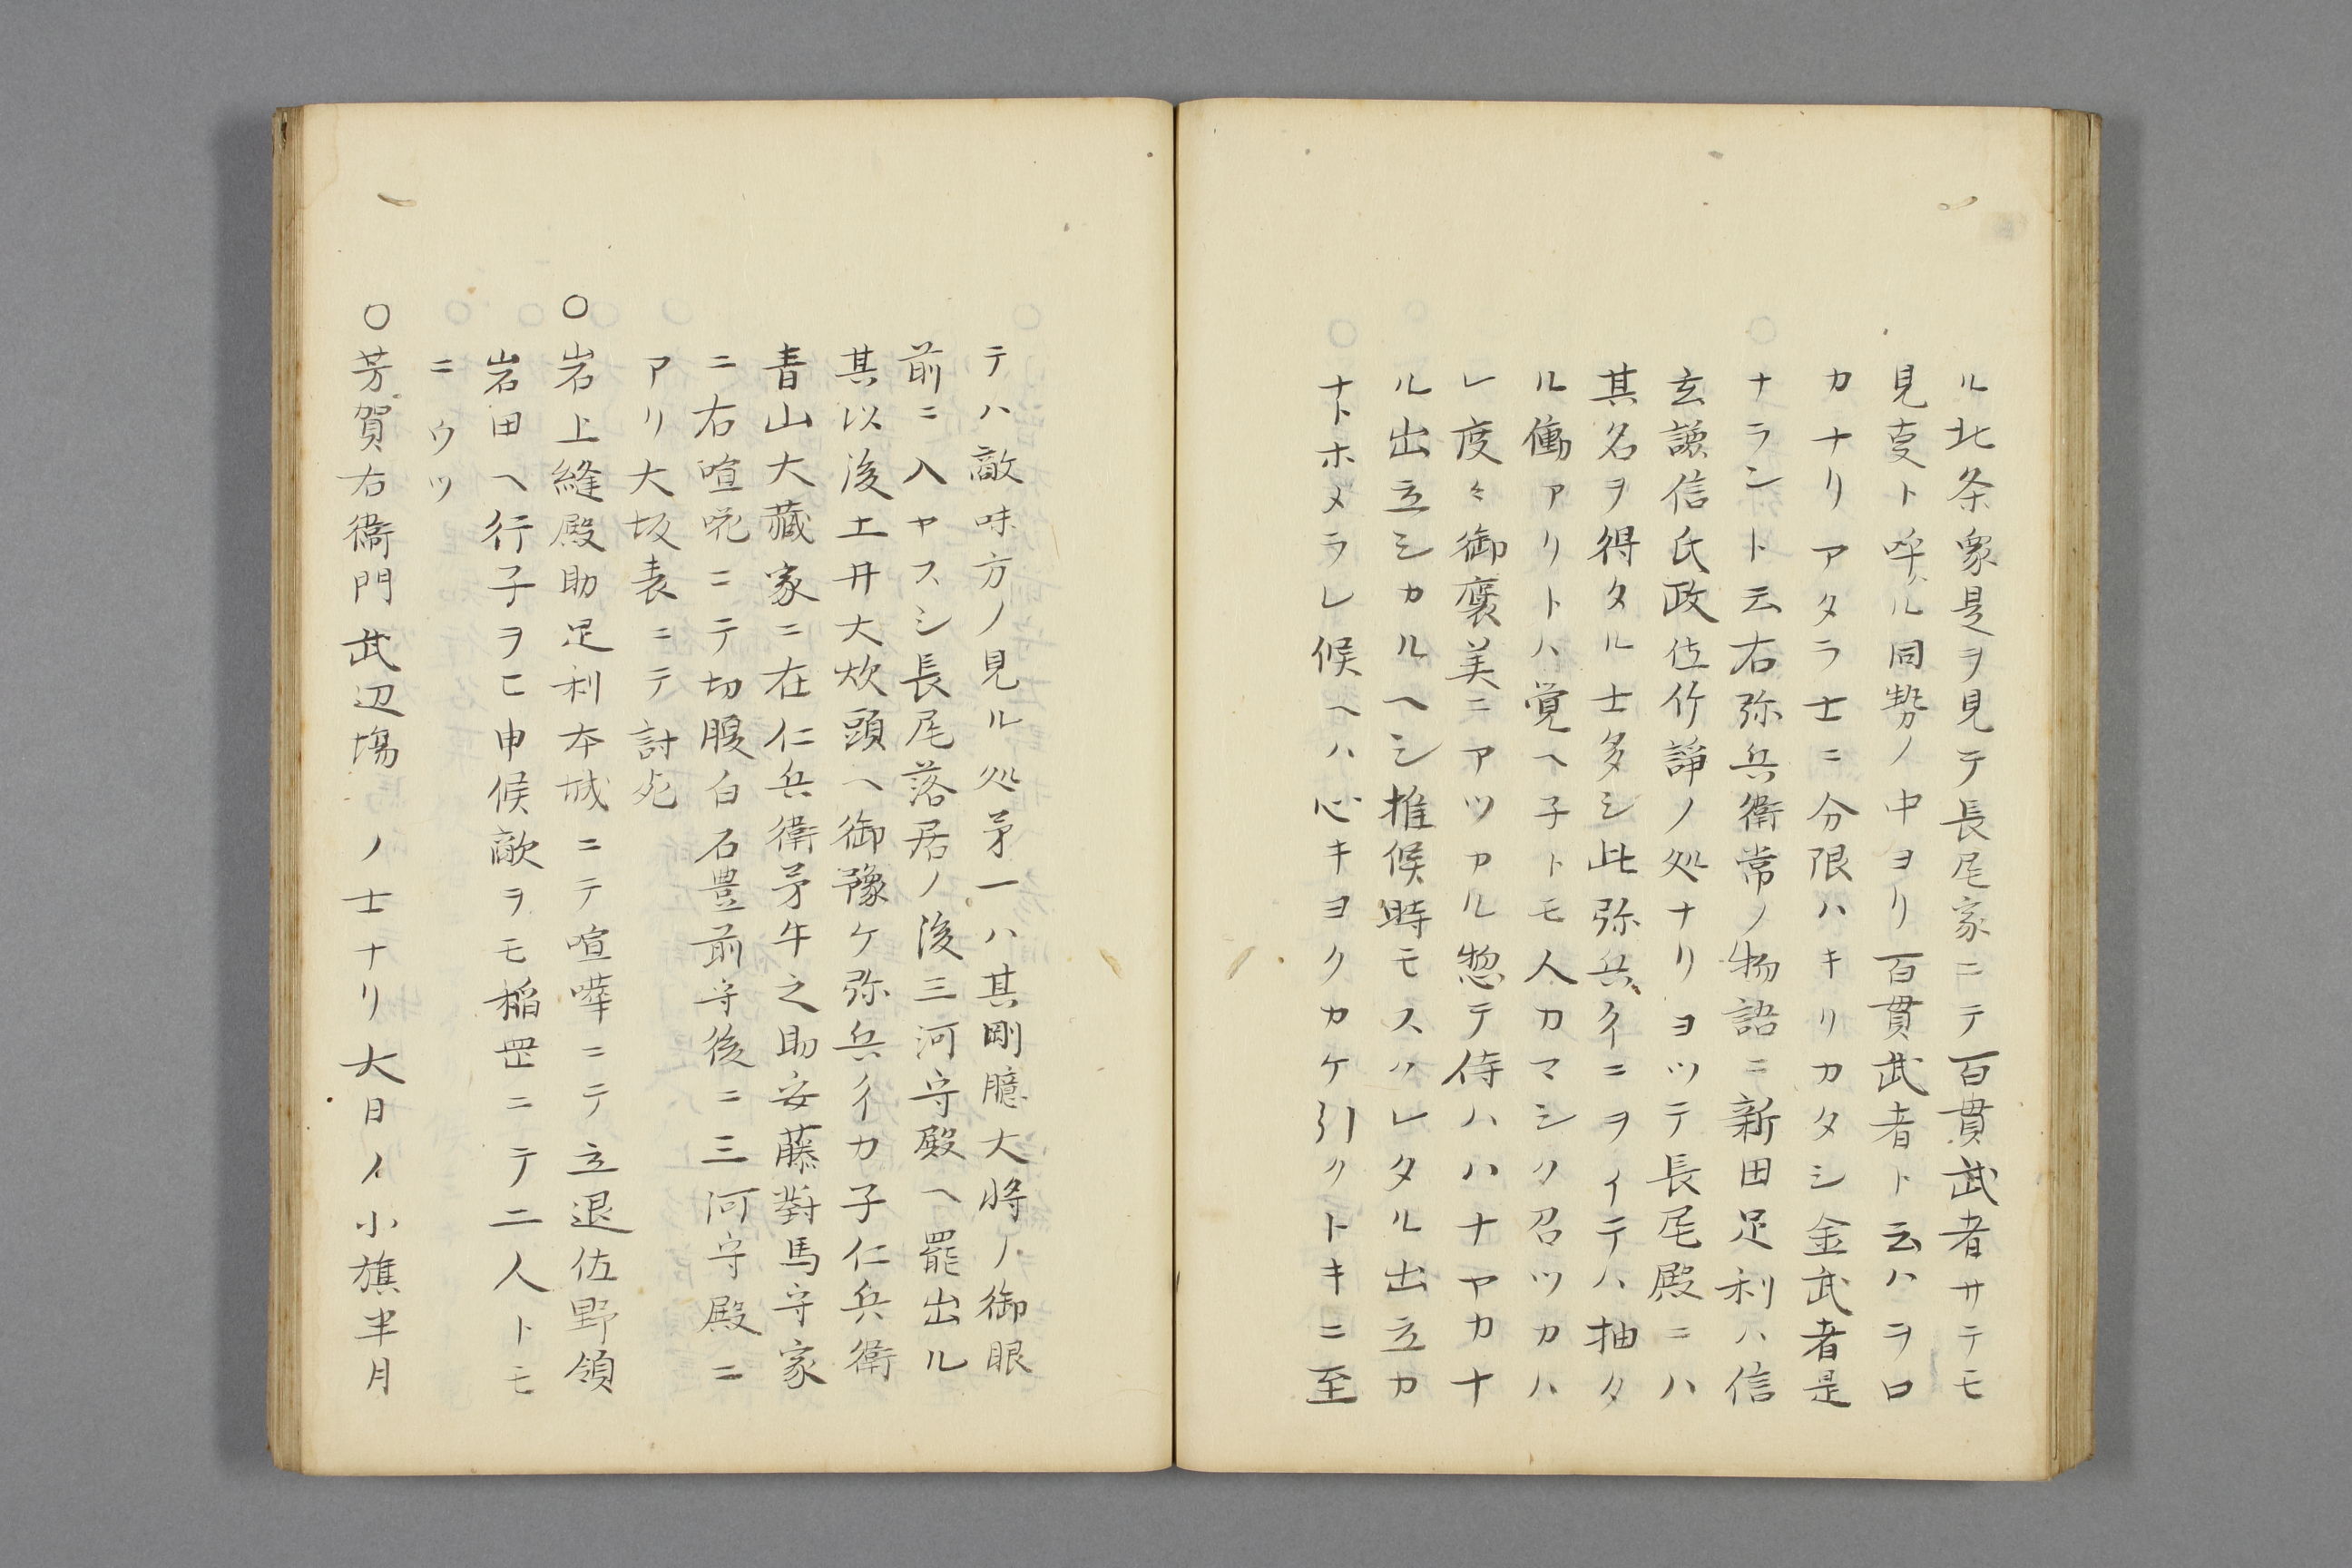 ル北条衆是ヲ見テ長尾家ニテ百貫武者サテモ
見叓ト呼ハル同勢ノ中ヨリ百貫武者ト云ハヲロ
カナリアタラ士ニ分限ハキリカタシ金武者是
ナラント云右弥兵衛常ノ物語ニ新田足利ハ信
玄謙信氏政佐竹諍ノ処ナリヨツテ長尾殿ニハ
其名ヲ得タル士多シ此弥兵衛ニヲイテハ抽タ
ル働アリトハ覚ヘ子トモ人カマシク召ツカハ
レ度々御褒美ニアツカル惣テ侍ハハナヤカナ
ル出立シカルヘシ推候時モスクレタル出立カ
ナトホメラレ候ヘハ心キヨクカケ引クトキニ至
テハ敵味方ノ見ル処矛一ハ其剛臆大将ノ御眼
前ニ入ヤスシ長尾落居ノ後三河守殿ヘ罷出ル
其以後土井大炊頭ヘ御豫ケ弥兵衛カ子仁兵衛
青山大藏家ニ在仁兵衛矛牛之助安藤對馬守家
ニ右喧𠵅ニテ切腹白石豊前守後ニ三河守殿ニ
アリ大坂表ニテ討死
○岩上縫殿助足利本城ニテ喧嘩ニテ立退佐野領
岩田ヘ行子ヲヒ申候敵ヲモ稲罡ニテ二人トモ
ニウツ
○芳賀右衛門武辺塲ノ士ナリ大日イ小旗半月